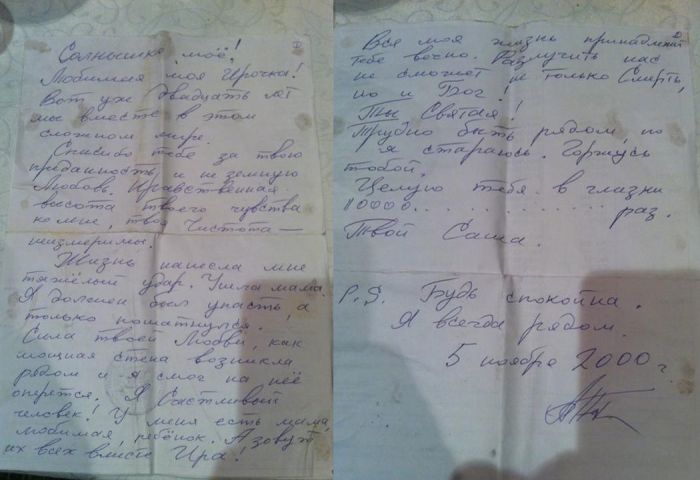 ①
Солнышко моё!
Любимая моя Ирочка!
Вот уже двадцать лет
мы вместе в этом
сложном мире.
Спасибо тебе за твою
преданность и не земную
Любовь. Нравственная
высота твоего чувства
ко мне, твоя Чистота —
неизмеримы.
Жизнь нанесла мне
тяжёлый удар. Ушла мама.
Я должен был упасть, а
только пошатнулся.
Сила твоей Любви, как
мощная стена возникла
рядом и я смог на неё
опереться. Я Счастливый
человек! У меня есть мама,
любимая, ребёнок. А зовут
их всех вместе Ира!
②
Вся моя жизнь принадлежит
тебе вечно. Разлучить нас
не сможет не только Смерть,
но и Бог!
Ты Святая!
Трудно быть рядом, но
я стараюсь. Горжусь
тобой.
Целую тебя в глазки
110000. . . . . . . . . . . . раз.
Твой Саша.
P.S. Будь спокойна.
Я всегда рядом.
5 ноября 2000 г.